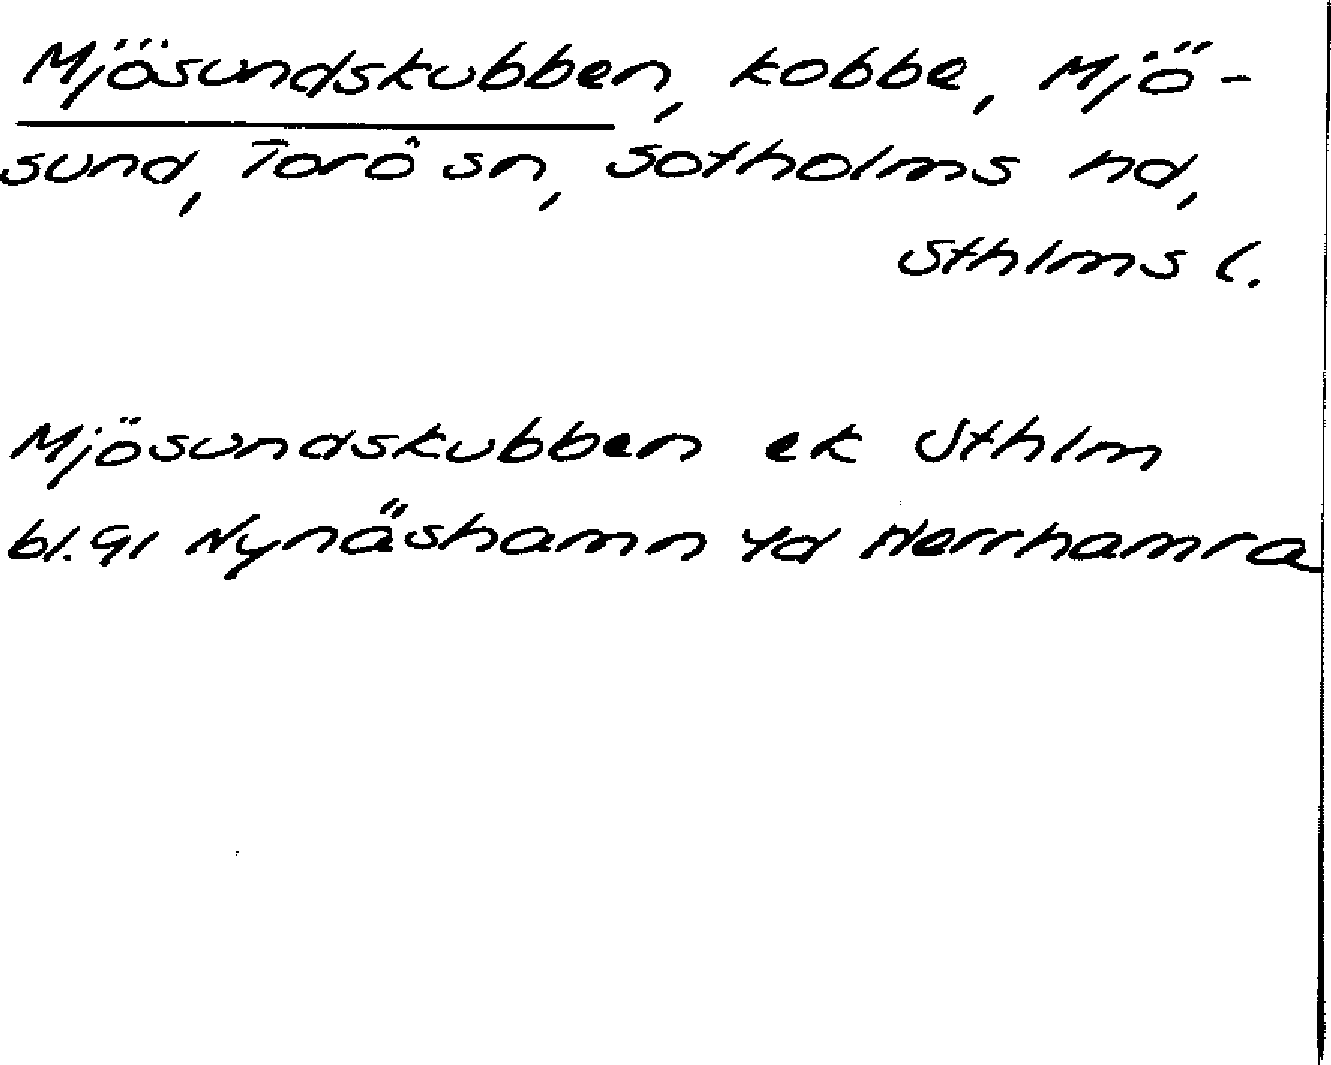 Mjösundskubben, kobbe, Mjö-
sund, Torö sn, Sotholms hd,
Sthlms l.
Mjösundskubben ek Sthlm
bl. 91 Nynäshamn Yd Herrhamra